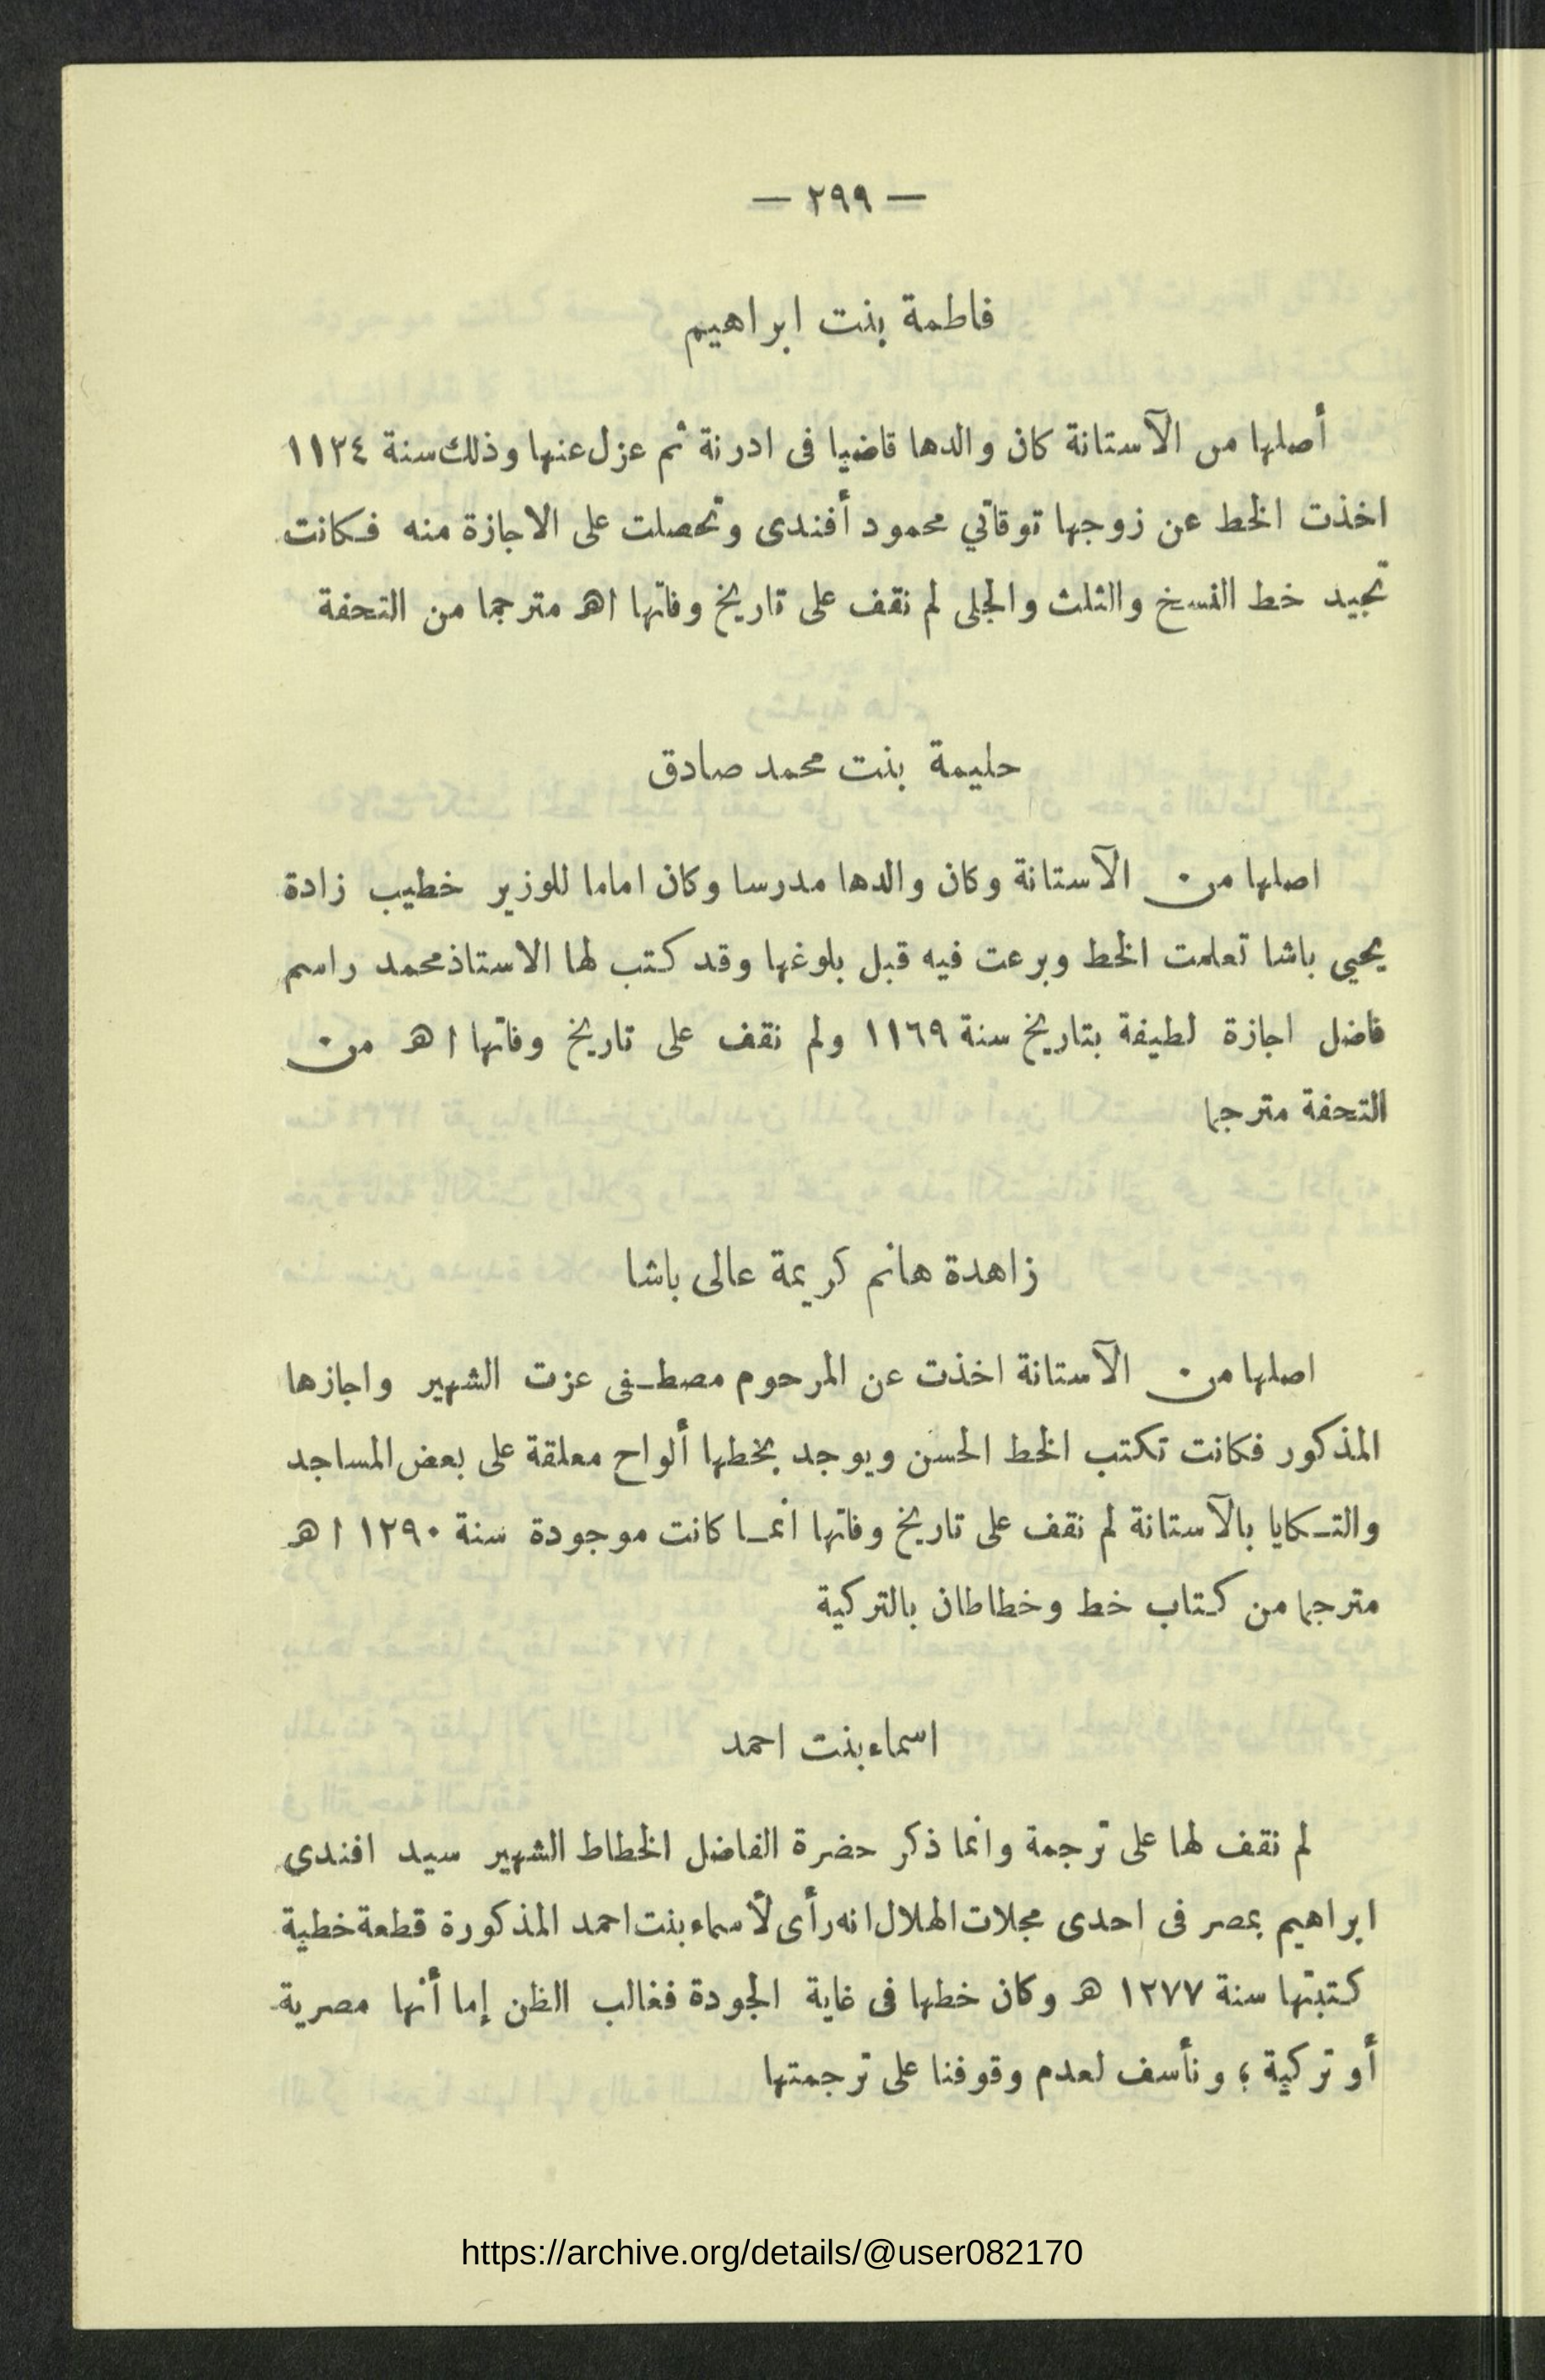 — ٢٩٩ —
فاطمة بنت ابراهيم
أصلها من الآستانة كان والدها قاضيا فى ادرنة ثم عزل عنها وذلك سنة ١١٣٤
اخذت الخط عن زوجها توقاتي محمود أفندى وتحصلت على الاجازة منه فكانت
تجيد خط النسخ والثلث والجلى لم نقف على تاريخ وفاتها اهـ مترجما من التحفة
حليمة بنت محمد صادق
اصلها من الآستانة وكان والدها مدرسا وكان اماما للوزير خطيب زادة
يحيى باشا تعلمت الخط وبرعت فيه قبل بلوغها وقد كتب لها الاستاذ محمد راسم
فاضل اجازة لطيفة بتاريخ سنة ١١٦٩ ولم نقف على تاريخ وفاتها اهـ من
التحفة مترجما
زاهدة هانم كريمة عالى باشا
اصلها من الآستانة اخذت عن المرحوم مصطفى عزت الشهير واجازها
المذكور فكانت تكتب الخط الحسن ويوجد بخطها ألواح معلقة على بعض المساجد
والتكايا بالآستانة لم نقف على تاريخ وفاتها انما كانت موجودة سنة ١٢٩٠ اهـ
مترجما من كتاب خط وخطاطان بالتركية
اسماء بنت احمد
لم نقف لها على ترجمة وانما ذكر حضرة الفاضل الخطاط الشهير سيد افندي
ابراهيم بمصر فى احدى مجلات الهلال انه رأى لأسماء بنت احمد المذكورة قطعة خطية
كتبتها سنة ١٢٧٧ هـ وكان خطها فى غاية الجودة فغالب الظن إما أنها مصرية
أو تركية ؛ ونأسف لعدم وقوفنا على ترجمتها
https://archive.org/details/@user082170